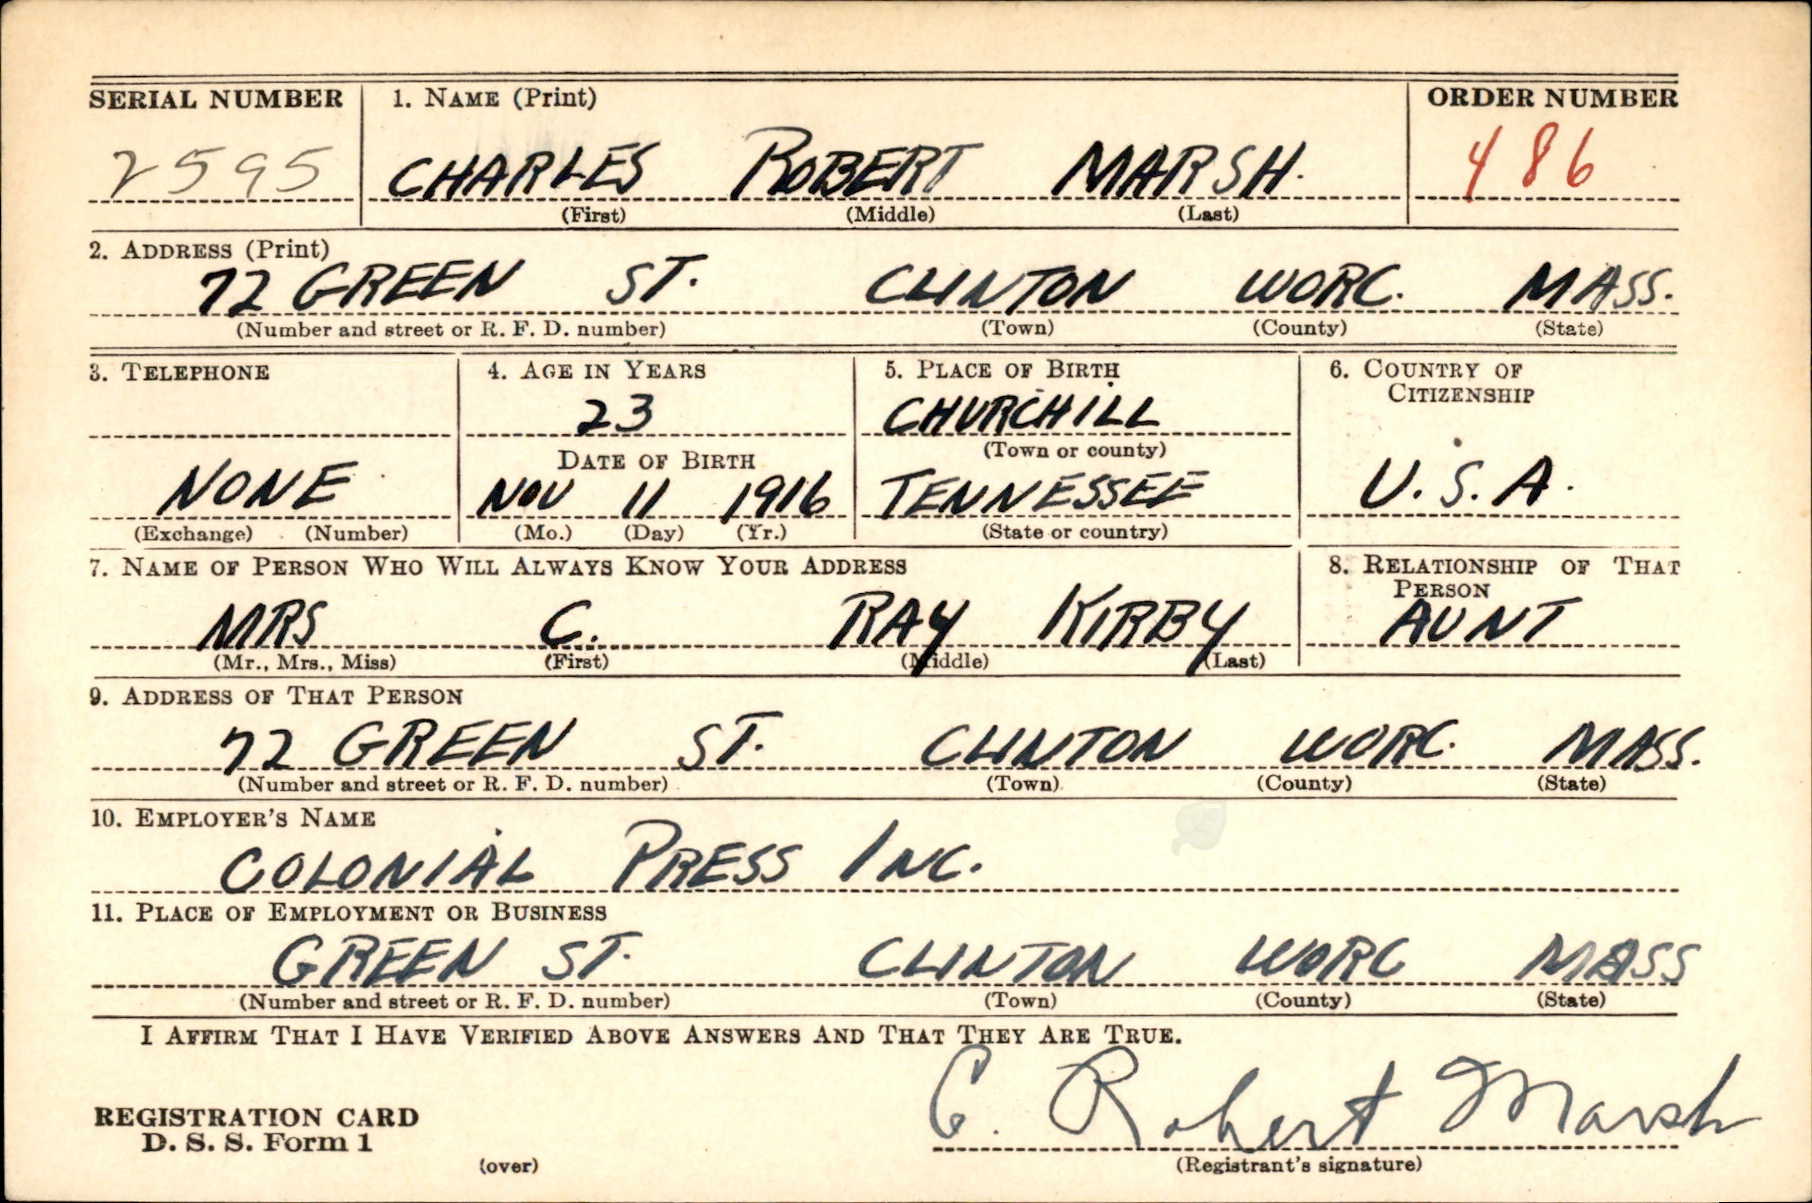 SERIAL NUMBER 1. NAME (Print) ORDER NUMBER
2595 CHARLES ROBERT MARSH. 486
(First) (Middle) (Last)
2. ADDRESS (Print)
72 GREEN ST. CLINTON WORC. MASS.
(Number and street or R. F. D. number) (Town) (County) (State)
3. TELEPHONE 4. AGE IN YEARS 5. PLACE OF BIRTH 6. COUNTRY OF
CITIZENSHIP
23 CHURCHILL
(Town or county)
DATE OF BIRTH
NONE NOV 11 1916 TENNESSEE U.S.A.
(Exchange) (Number) (Mo.) (Day) (Yr.) (State or country)
7. NAME OF PERSON WHO WILL ALWAYS KNOW YOUR ADDRESS 8. RELATIONSHIP OF THAT
PERSON
MRS C. RAY KIRBY AUNT
(Mr., Mrs., Miss) (First) (Middle) (Last)
9. ADDRESS OF THAT PERSON
72 GREEN ST. CLINTON WORC. MASS.
(Number and street or R. F. D. number) (Town) (County) (State)
10. EMPLOYER'S NAME
COLONIAL PRESS INC.
11. PLACE OF EMPLOYMENT OR BUSINESS
GREEN ST. CLINTON WORC MASS
(Number and street or R. F. D. number) (Town) (County) (State)
I AFFIRM THAT I HAVE VERIFIED ABOVE ANSWERS AND THAT THEY ARE TRUE.
C. Robert Marsh
REGISTRATION CARD
D. S. S. Form 1
(over) (Registrant's signature)